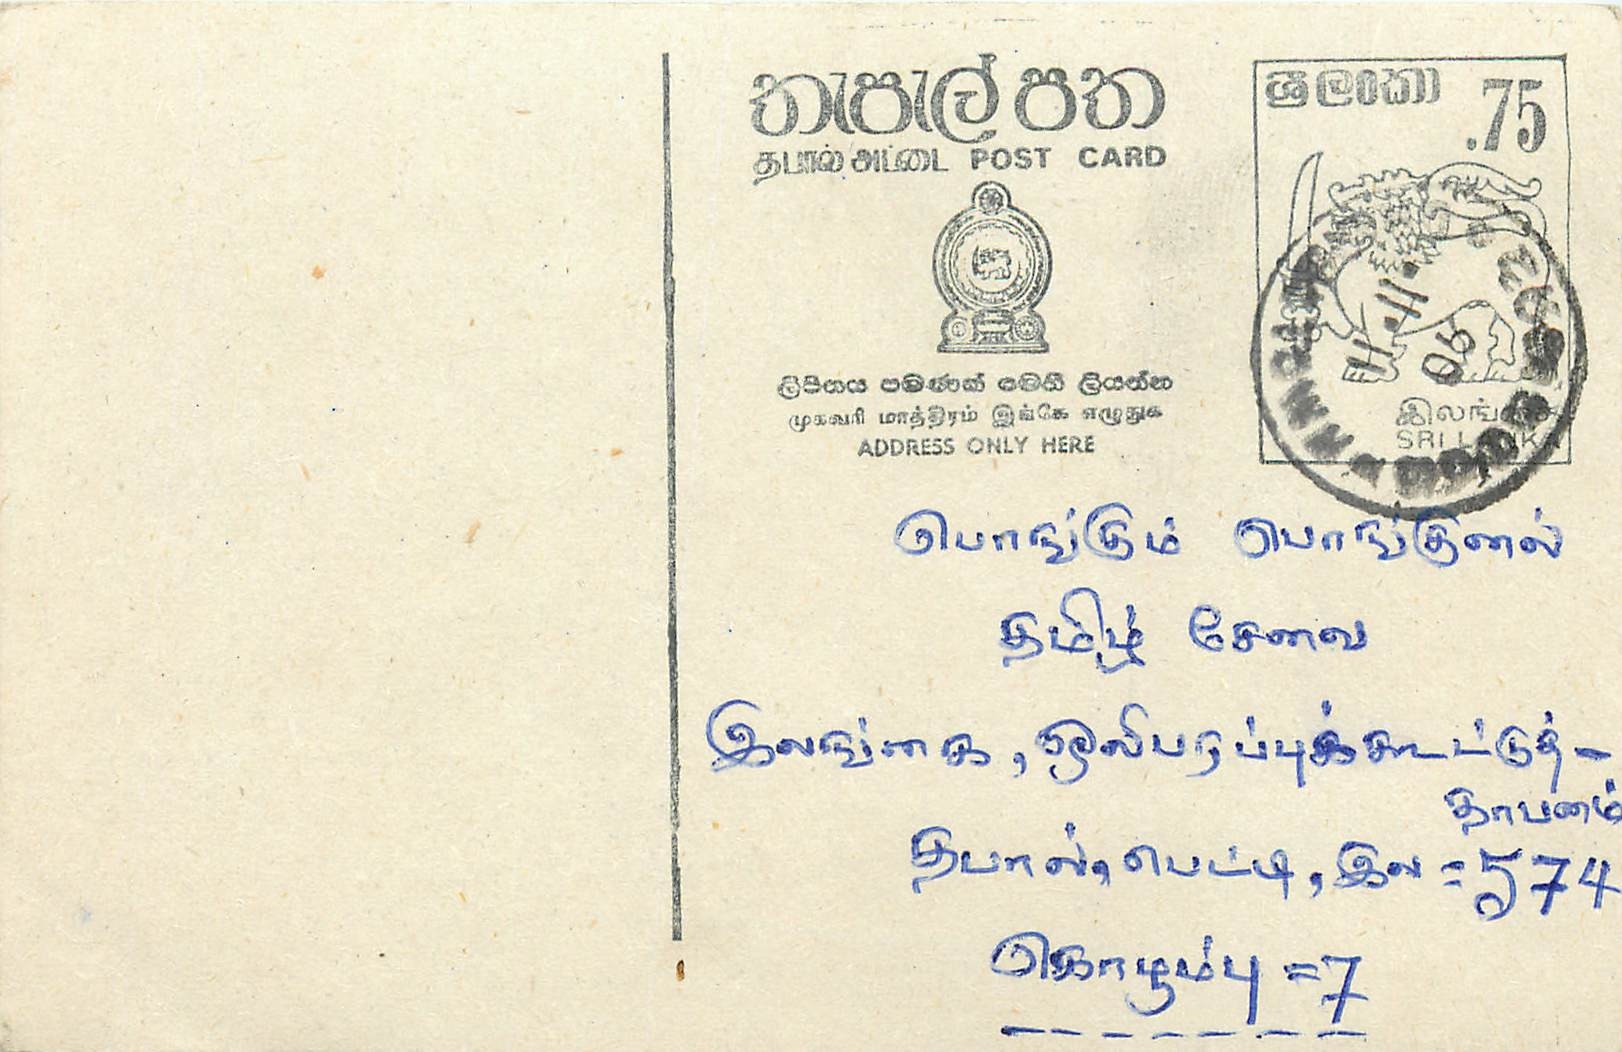 තැපැල් පත
தபால் அட்டை POST CARD
ශ්‍රී ලංකා .75
ලිපිනය පමණක් මෙහි ලියන්න
முகவரி மாத்திரம் இங்கே எழுதுக
ADDRESS ONLY HERE
இலங்கை
SRI LANKA
பொங்கும் பொங்குனல்
தமிழ் சேவை
இலங்கை, ஒலிபரப்புக்கூட்டுத்-
தாபனம்
தபால், பெட்டி, இல = 574
கொழும்பு = 7